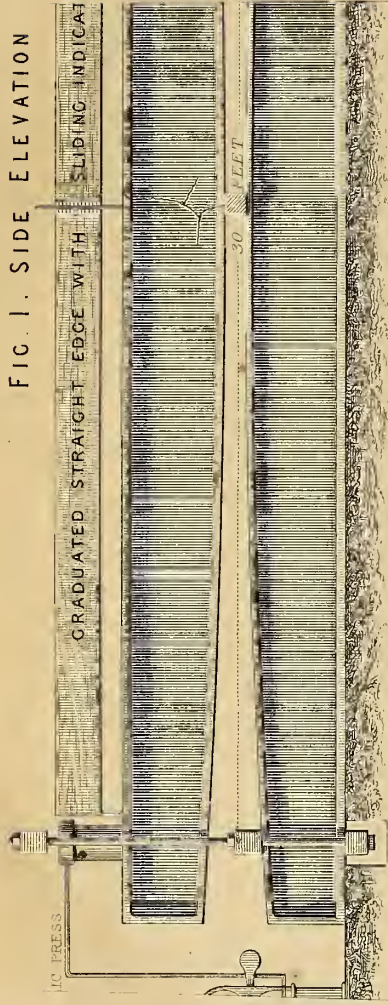 FIG. 1. SIDE ELEVATION
GRADUATED STRAIGHT EDGE WITH SLIDING INDICAT
IC PRESS
30 FEET